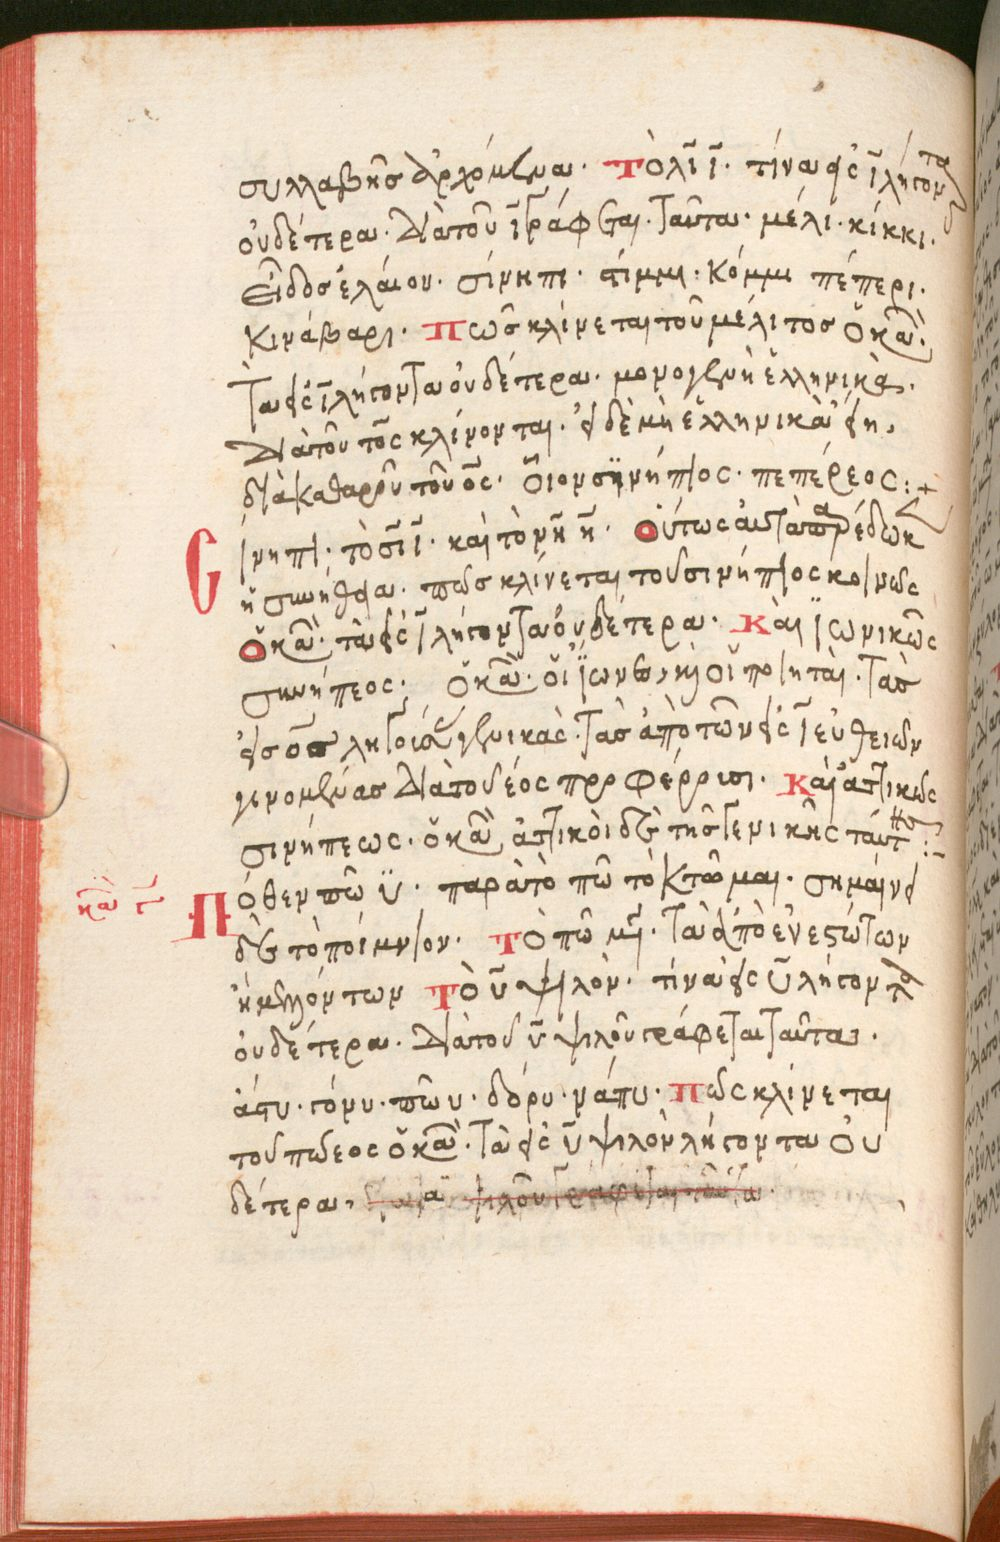 συλλαβῆς ἀρχόμενα. Τὸ λῖ ῖ. τίνα εἰς ῖ λήγοντα
οὐδέτερα. διὰ τοῦ ῖ γράφεται. ταῦτα. μέλι. κίκκι.
εἶδος ἐλαίου. σίνηπι. στίμμι. κόμμι πέπερι.
κινάβαρι. Πῶς κλίνεται τοῦ μέλιτος ὁ κανών.
Τὰ εἰς ῖ λήγοντα οὐδέτερα. μονογενῆ ἑλληνικὰ.
διὰ τοῦ τος κλίνονται. εἰ δὲ μὴ ἑλληνικὰ εἴη.
διὰ καθαροῦ τοῦ ος. οἷον σινήπιος. πεπέρεος :+
Σίνηπι. τὸ σῖ ῖ. καὶ τὸ νῆ η. Οὕτως αὐτὰ παρέδωκεν
ἡ συνήθεια. πῶς κλίνεται τοῦ σινήπιος κοινῶς
Ὁ κανών. τὰ εἰς ῖ λήγοντα οὐδέτερα. Καὶ ἰωνικῶς
σινήπεος. ὁ κανών. οἱ ἴωνες καὶ οἱ ποιηταὶ. τὰς
εἰς ος ληγούσας γενικὰς. τὰς ἀπὸ τῶν εἰς ῖ εὐθειῶν
γενομένας διὰ τοῦ εος προφέρουσι. Καὶ ἀττικῶς
σινήπεως. ὁ κανών ἀττικοὶ δὲ τῆς γενικῆς ταύτης :-
κανών
Πόθεν πῶϋ. παρὰ τὸ πῶ τὸ κτῶμαι. σημαίνει
δὲ τὸ ποίμνιον. Τὸ πῶ μέγα. τὰ ἀπὸ ἐνεστώτων
Τὸ ῦ ψιλὸν. τίνα εἰς ῦ λήγοντα
οὐδέτερα. διὰ τοῦ ῦ ψιλοῦ γράφεται ταῦτα.
ἄστυ. γόνυ. πῶυ. δόρυ. νάπυ. Πῶς κλίνεται
τοῦ πώεος ὁ κανών. τὰ εἰς ῦ ψιλὸν λήγοντα οὐ
δέτερα,